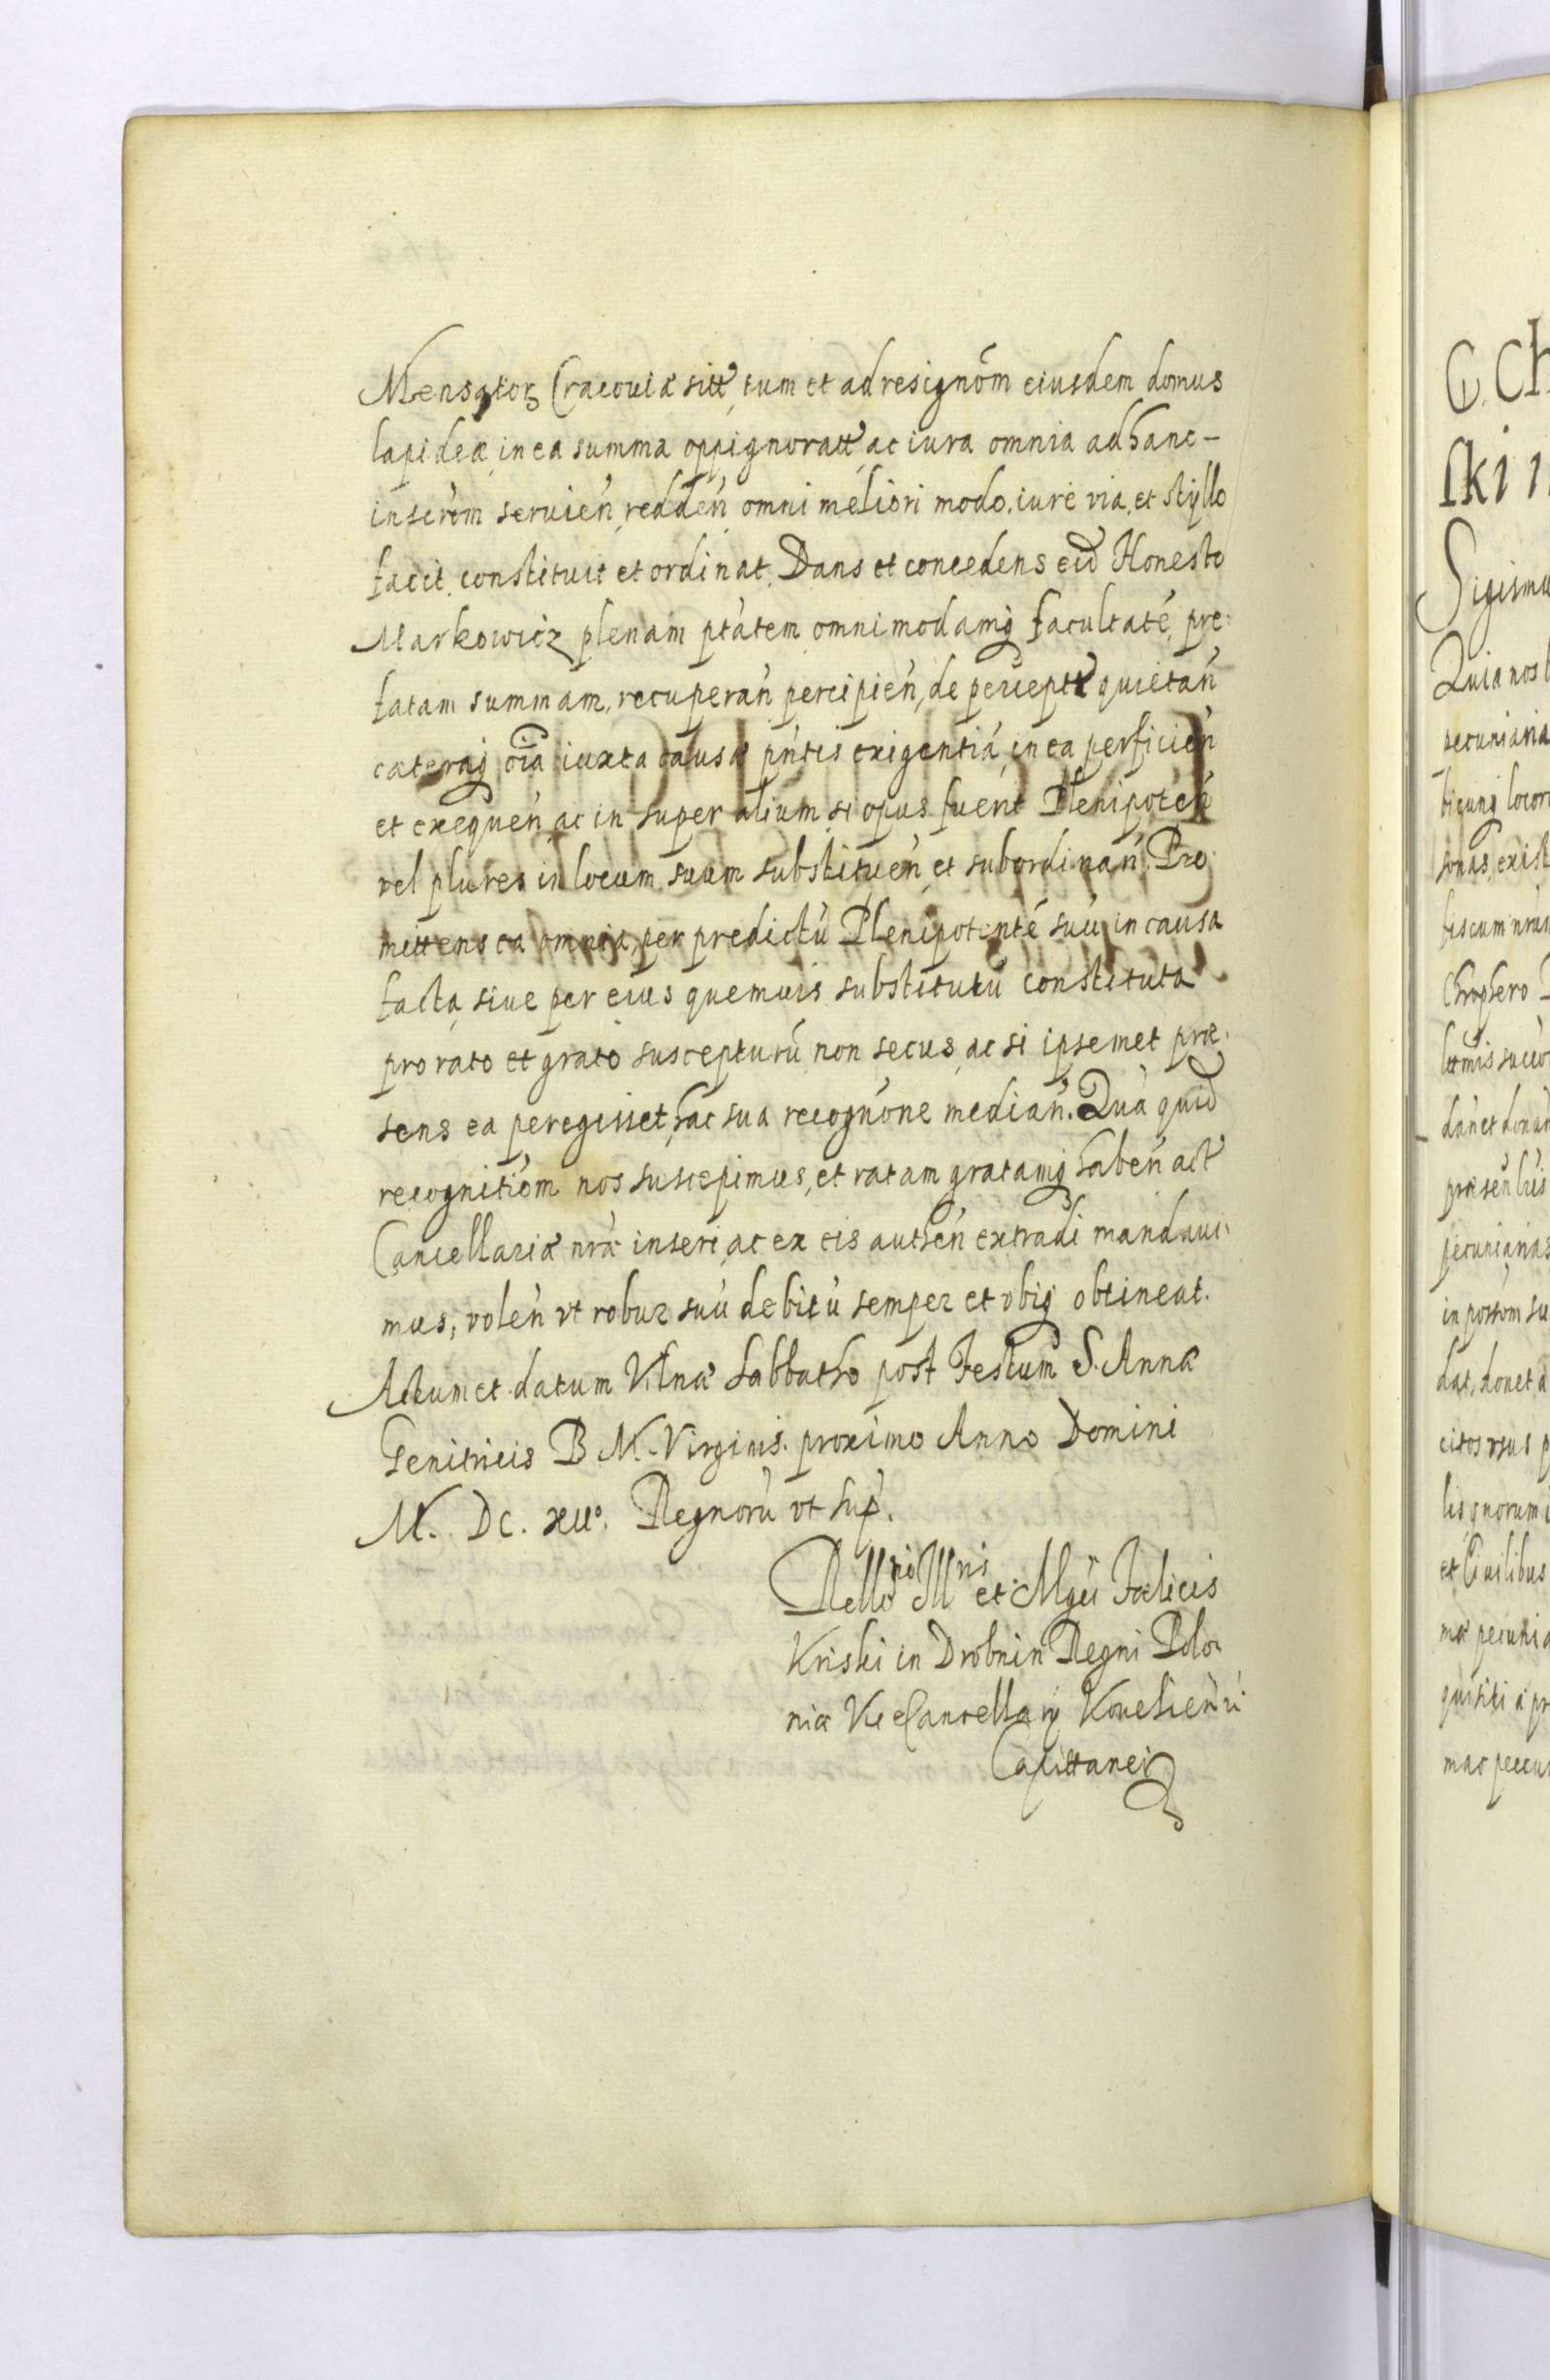 Mensatorꝝ Cracouiæ sitt, tum et ad resignõm eiusdem domus
lapideæ in ea summa oppignoratt, ac iura omnia ad hanc-
inscrõm seruień, reddeń omni meliori modo, iure via, et styllo
facit, constituit et ordinat. Dans et concedens eid Honesto
Markowicz plenam ptátem omnimodamq́ facultaté, pre:
fatam summam, recuperań percipień, de percept quietań
cæteraq́ oĩa iuxta causæ pńtis exigentiá, in ea perficień
et exequeń, ac in super alium si opus fuerit Plenipoteń
vel plures in locum suum substitueń, et subordinań. Pro
mittens ea omnia, per predictú Plenipotenté suú in causa
facta, siue per eius quemuis substitutú constituta
pro rato et grato suscepturú, non secus, ac si ipsemet præ:
sens ea peregisset, hac sua recognóne mediań. Quá quid
recognitióm nos suscepimus, et ratam gratamq́ habeń act
Cancellariæ nrǽ inseri, ac ex eis autheń extradi mandaui:
mus, voleń vt robur suú debitú semper et vbiq́ obtineat.
Actum et datum Vilnæ Sabbatho post Festum S. Annæ
Genitricis B M. Virginis. proximo Anno Domini
M. DC. XII°. Regnorú vt sup̀.
Rello Illris et Mgci Fœlicis
Kriski in Drobnin Regni Polo
niæ Vice Cancellarij
Capittanei
G. Ch
ski i
Sigismu
Quia nos
pecuniaria
bicunq́ locor
sonas, exist
Chrophero
dań et donań
pecuniarias
dat, donet, a
et Ciuilibus
mæ pecunia
quisiti a pr